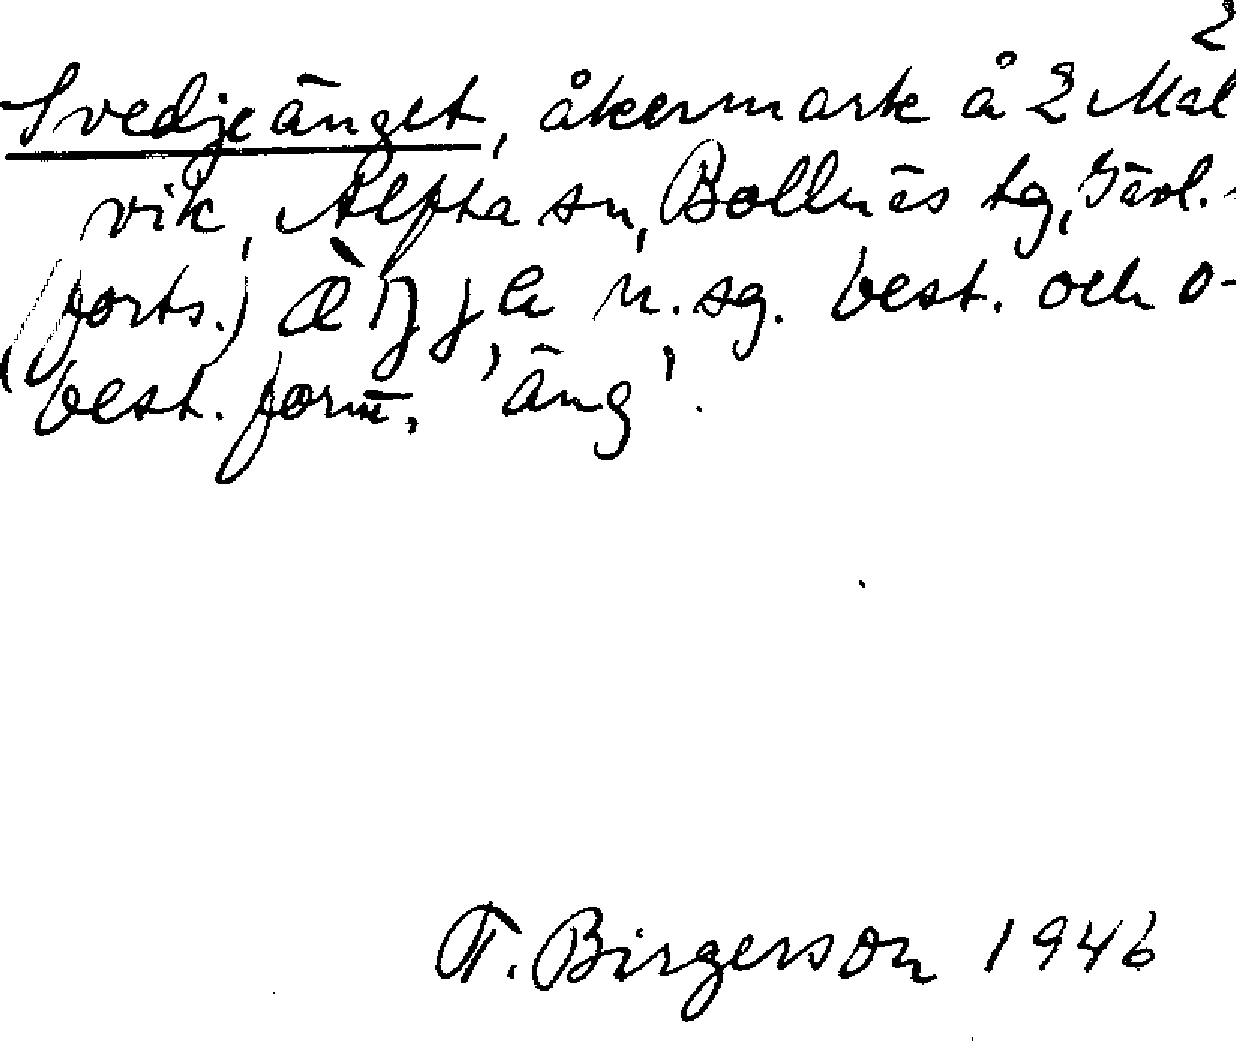 2
Svedjeänget, åkermark å 2 Mal
vik, Alfta sn, Bollnäs tg, Gävl.
(forts.) n. sg. best. och o-
best. form, 'äng'.
T. Birgerson 1946